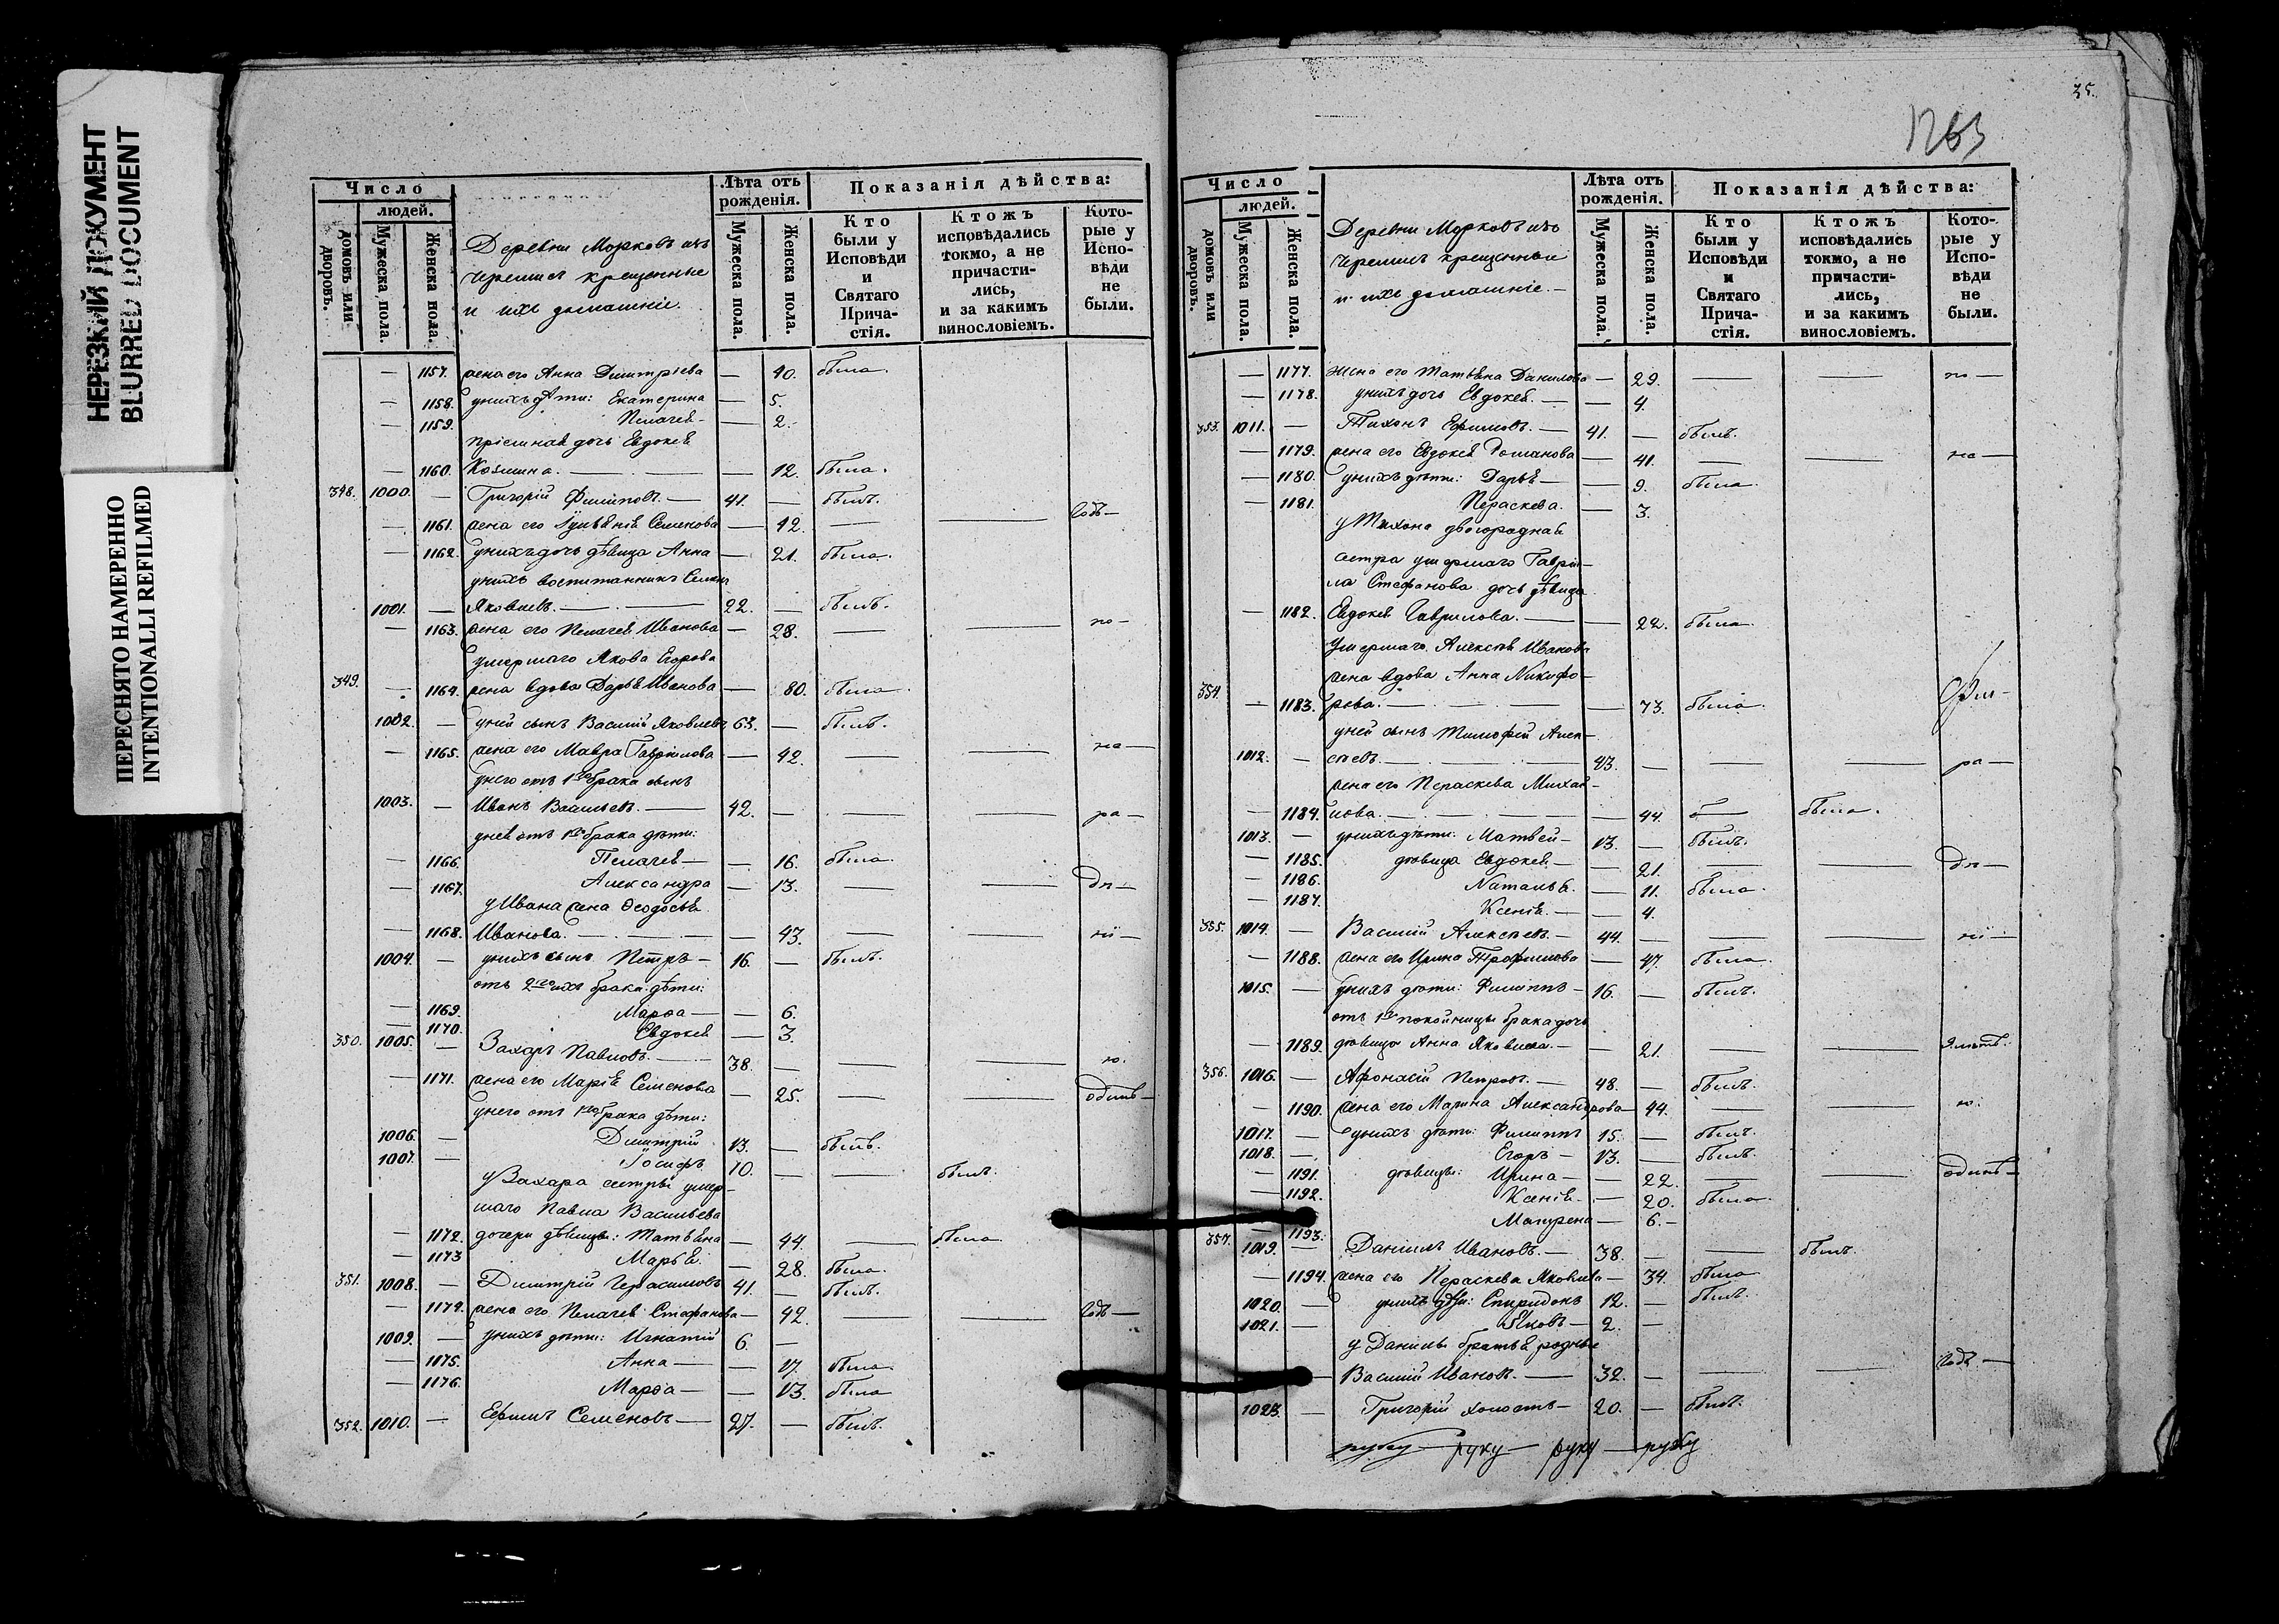 НЕРЕЗКИЙ ДОКУМЕНТ
BLURRED DOCUMENT
ПЕРЕСНЯТО НАМЕРЕННО
INTENTIONALLI REFILMED
Число
людей.
домовъ или дворовъ.
Мужеска пола.
Женска пола.
Деревни Морковъ изъ
черемисъ крещенные
и ихъ домашніе.
Лѣта отъ рожденія.
Мужеска пола.
Женска пола.
Показанія дѣйства:
Кто были у Исповѣди и Святаго Прича-стія.
Ктожъ исповѣдались токмо, а не причасти-лись, и за какимъ винословіемъ.
Кото-рые у Испо-вѣди не были.
— 1157. жена его Анна Димитріева — 40. была.
— 1158. у нихъ дѣти: Екатерина — 5.
— 1159. Пелагея — 2.
пріемная дочь Евдокея
— 1160. Козмина. — 12. была.
348. 1000. — Григорій Филиповъ. — 41. — былъ.
— 1161. жена его Іуліанія Семенова — 42. — — годъ —
— 1162. у нихъ дочь дѣвица Анна — 21. была.
у нихъ воспитанникъ Семенъ
1001. — Яковлевъ. — 22. — былъ.
— 1163. жена его Пелагея Иванова — 28. — — по —
умершаго Якова Егорова
349. — 1164. жена вдова Дарья Иванова — 80. была.
1002. — у ней сынъ Василій Яковлевъ 63. — былъ.
— 1165. жена его Мавра Гаврилова — 42. — — на —
у него отъ 1го брака сынъ
1003. — Иванъ Васильевъ. — 42. — — — ра —
у нея отъ 1го брака дѣти:
— 1166. Пелагея — — 16. была.
— 1167. Александра — 13. — — дѣ —
у Ивана жена Ѳеодосья
— 1168. Иванова. — — 43. — — ні —
1004. — у нихъ сынъ Петръ — 16. — былъ.
отъ 2го ихъ брака дѣти:
— 1169. Марѳа — — 6.
— 1170. Евдокея — 3.
350. 1005. — Захаръ Павловъ. — 38. — — — ю.
— 1171. жена его Марія Семенова — 25. — — одинъ —
у него отъ 1го брака дѣти:
1006. — Димитрій 13. — былъ.
1007. — Іосифъ 10. — — былъ.
у Захара сестры умер-
шаго Павла Васильева
— 1172. дочери дѣвицы: Татьяна — 44. — была.
— 1173 Марья. — 28. была.
351. 1008. — Димитрій Герасимовъ 41. — былъ.
— 1174. жена его Пелагея Стефанова — 42. — — годъ —
1009. — у нихъ дѣти: Игнатій 6. —
— 1175. Анна — — 17. была.
— 1176. Марѳа — — 13. была
352. 1010. — Ефимъ Семеновъ — 27. — былъ.
35.
1263
Число
людей.
домовъ или дворовъ.
Мужеска пола.
Женска пола.
Деревни Морковъ изъ
черемисъ крещенные
и ихъ домашніе. —
Лѣта отъ рожденія.
Мужеска пола.
Женска пола.
Показанія дѣйства:
Кто были у Исповѣди и Святаго Прича-стія.
Ктожъ исповѣдались токмо, а не причасти-лись, и за какимъ винословіемъ.
Кото-рые у Испо-вѣди не были.
— 1177. жена его Татьяна Данилова — 29. — — по —
— 1178. у нихъ дочь Евдокея. — — 4.
353. 1011. — Тихонъ Ефимовъ. — 41. — былъ.
— 1179. жена его Евдокея Романова — 41. — — на —
— 1180. у нихъ дѣти: Дарья — — 9. была.
— 1181. Пераскева. — 3.
у Тихона двоюродная
сестра умершаго Гаврі-
ла Стефанова дочь дѣвица
— 1182. Евдокея Гаврилова. — — 22. была.
Умершаго Алексѣя Иванова
354. жена вдова Анна Никифо-
— 1183. рова. — — 73. была.
у ней сынъ Тимофей Алек-
1012. — сѣевъ. — 43. — — — ра —
жена его Пераскева Михай-
— 1184. лова. — — 44. — была.
1013. — у нихъ дѣти: Матвей — 13. — былъ.
— 1185. дѣвица Евдокея. — — 21. — — дѣ —
— 1186. Наталья. — 11. была.
— 1187. Ксенія. — — 4.
355. 1014. — Василій Алексѣевъ. — 44. — — — ні —
— 1188. жена его Ирина Трофимова — 47. была.
1015. — у нихъ дѣти: Филиппъ — 16. — былъ.
отъ 1й покойницы брака дочь
— 1189. дѣвица Анна Яковлева. — — 21. — —
356. 1016. — Афонасій Петровъ. — 48. — былъ.
— 1190. жена его Марина Александрова — 44. — — ю.
1017. — у нихъ дѣти: Филиппъ 15. — былъ.
1018. — Егоръ — 13. — былъ.
— 1191. дѣвицы: Ирина — — 22. — — одинъ —
— 1192. Ксенія. — 20. была.
— 1193. Матрена — 6. —
357. 1019. — Даніилъ Ивановъ. — 38. — — былъ.
— 1194. жена его Пераскева Яковлева — 34. была
1020. — у нихъ дѣти: Спиридонъ 12. — былъ.
1021. — Яковъ — 2. —
у Даніила братья родные
— Василій Ивановъ. — 32. — — — годъ —
1023. — Григорій холостъ — 20. — былъ.
руку — руку — руку — руку